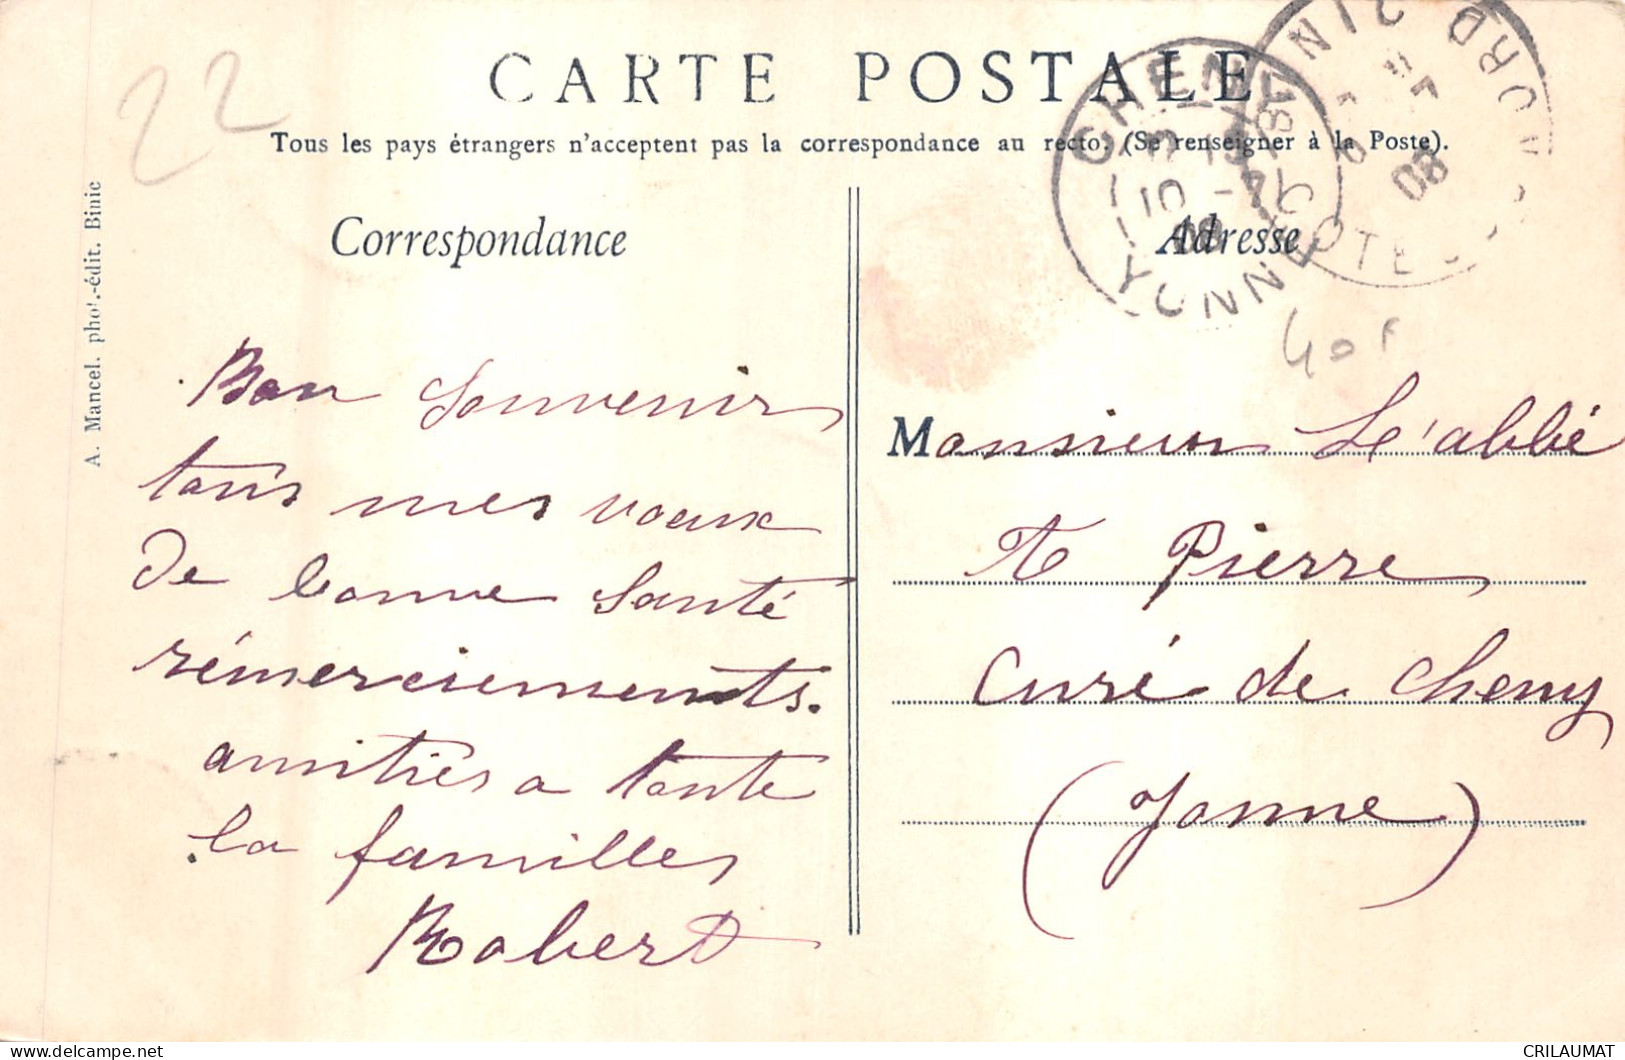 22
CARTE POSTALE
Tous les pays étrangers n'acceptent pas la correspondance au recto. (Se renseigner à la Poste).
A. Mancel. phot.-édit. Binic
Correspondance
Adresse
CHENY
YONNE
10 -7
08
BINIC
08
40F
Bon Souvenir
tous mes voeux
De bonne Santé
rémerciements.
amitiés a toute
la familles
Robert
Monsieur L'abbé
Pierre
Curé de Cheny
(Yonne)
CRILAUMAT